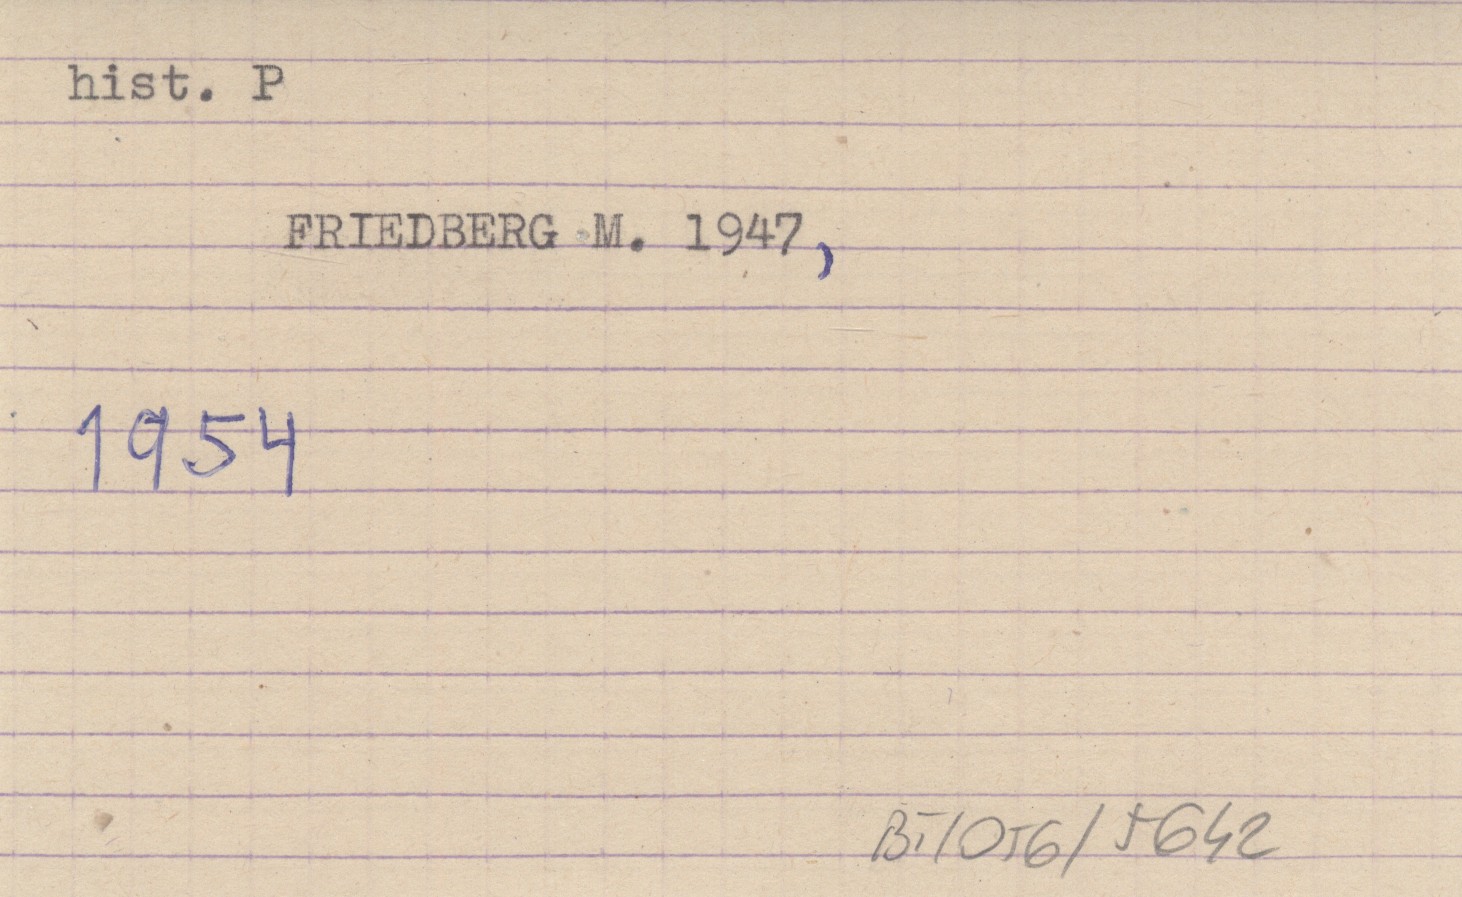 hist. P
FRIEDBERG M. 1947,
1954
BT/056/5642